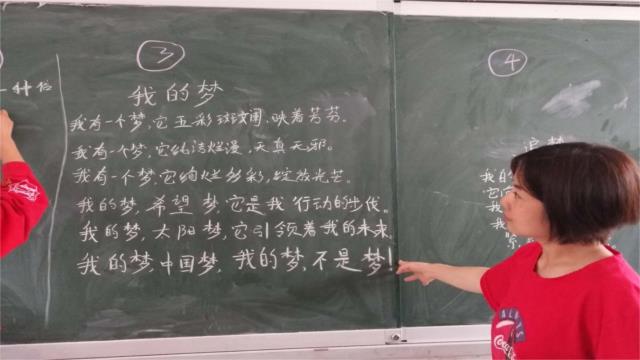 ③
我的梦
我有一个梦,它五彩斑斓,映着芬芬。
我有一个梦,它纯洁烂漫,天真无邪。
我有一个梦,它绚烂多彩,绽放光芒。
我的梦,希望梦,它是我行动的步伐。
我的梦,太阳梦,它引领着我的未来
我的梦,中国梦,我的梦,不是梦!
④
追梦
我的
我
我